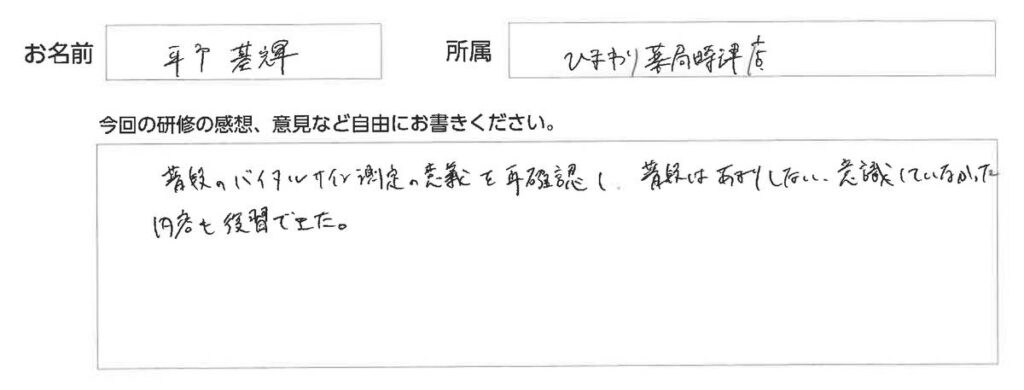 お名前 基輝 所属 ひまわり薬局時津店
今回の研修の感想、意見など自由にお書きください。
普段のバイタルサイン測定の意義を再確認し、普段はあまりしない、意識していなかった
内容も復習できた。